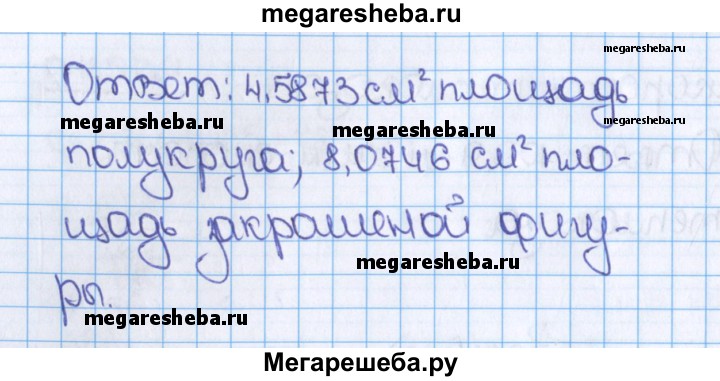 megaresheba.ru
megaresheba.ru
Ответ: 4,5873 см² площадь
megaresheba.ru
megaresheba.ru
megaresheba.ru
полукруга; 8,0746 см² пло-
щадь закрашеной фигу-
megaresheba.ru
ры.
megaresheba.ru
Мегарешеба.ру